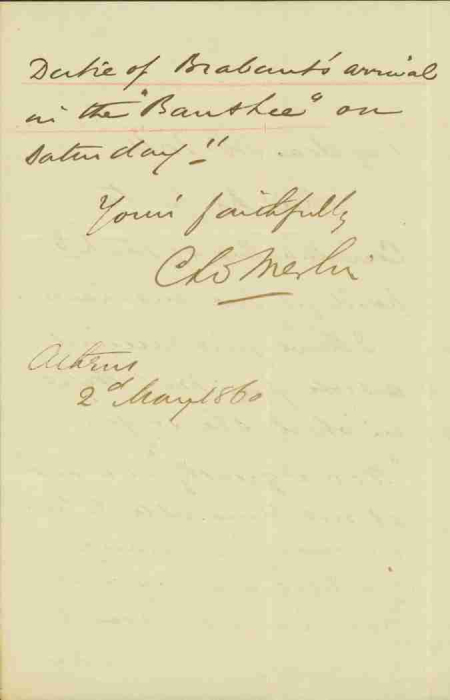 Duke of Brabant's arrival
in the "Banshee" on
Saturday!!
Yours faithfully
Chs Merlin
Athens
2d May 1860